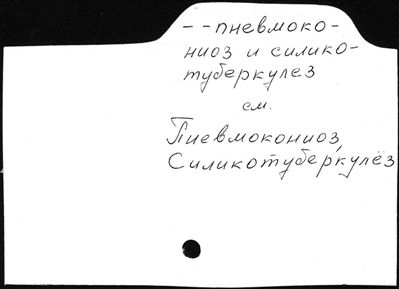 --пневмоко-
ниоз и силико-
туберкулез
см.
Пневмокониоз,
Силикотуберкулёз